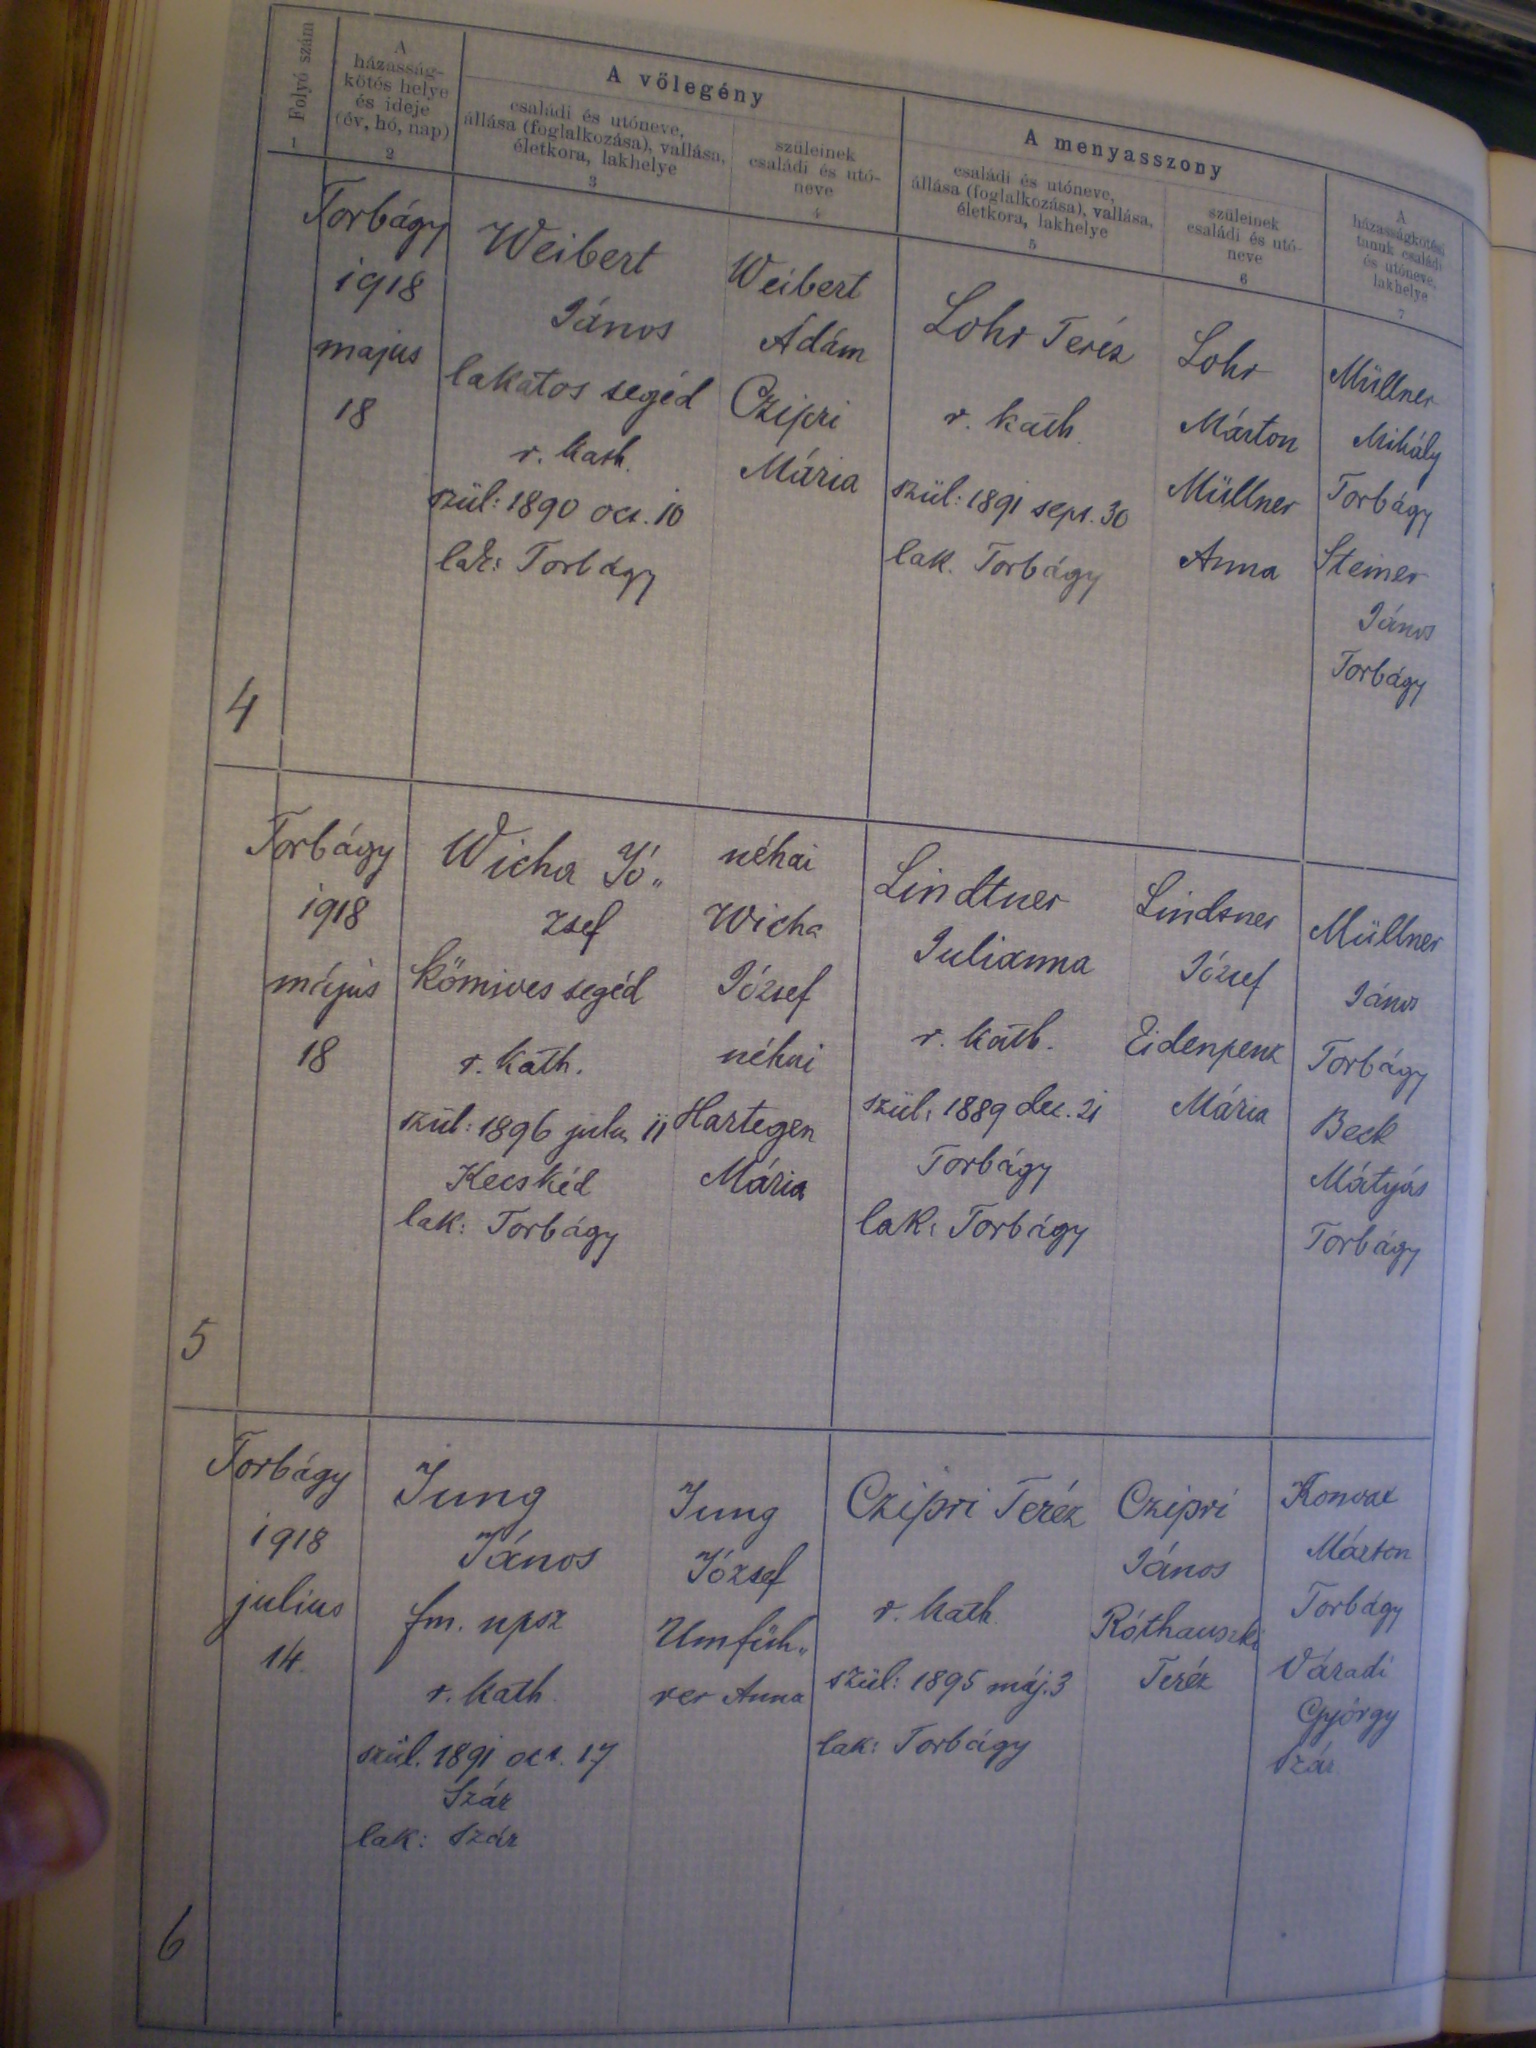 Folyó szám
1
A
házasság-
kötés helye
és ideje
(év, hó, nap)
2
A vőlegény
családi és utóneve,
állása (foglalkozása), vallása,
életkora, lakhelye
3
szüleinek
családi és utó-
neve
4
A menyasszony
családi és utóneve,
állása (foglalkozása), vallása,
életkora, lakhelye
5
szüleinek
családi és utó-
neve
6
A
házasságkötési
tanuk családi
és utóneve,
lakhelye
7
4
Torbágy
1918
majus
18
Weibert
János
lakatos segéd
r. kath.
szül: 1890 oct. 10
lak: Torbágy
Weibert
Ádám
Czipri
Mária
Lohr Teréz
r. kath.
szül: 1891 sept. 30
lak. Torbágy
Lohr
Márton
Müllner
Anna
Müllner
Mihály
Torbágy
Steiner
János
Torbágy
5
Torbágy
1918
május
18
Wicha Jó„
zsef
kőmives segéd
r. kath.
szül: 1896 julius 11
Kecskéd
lak: Torbágy
néhai
Wicha
József
néhai
Hartegen
Mária
Lindtner
Julianna
r. kath.
szül: 1889 dec. 21
Torbágy
lak: Torbágy
Lindtner
József
Eidenpenz
Mária
Müllner
János
Torbágy
Beck
Mátyás
Torbágy
6
Torbágy
1918
julius
14.
Jung
János
fm. npsz
r. kath.
szül. 1891 oct. 17
Szár
lak: Szár
Jung
József
Umfüh„
rer Anna
Czipri Teréz
r. kath.
szül: 1895 máj. 3
lak: Torbágy
Czipri
János
Róthauszki
Teréz
Konrat
Márton
Torbágy
Váradi
György
Szár